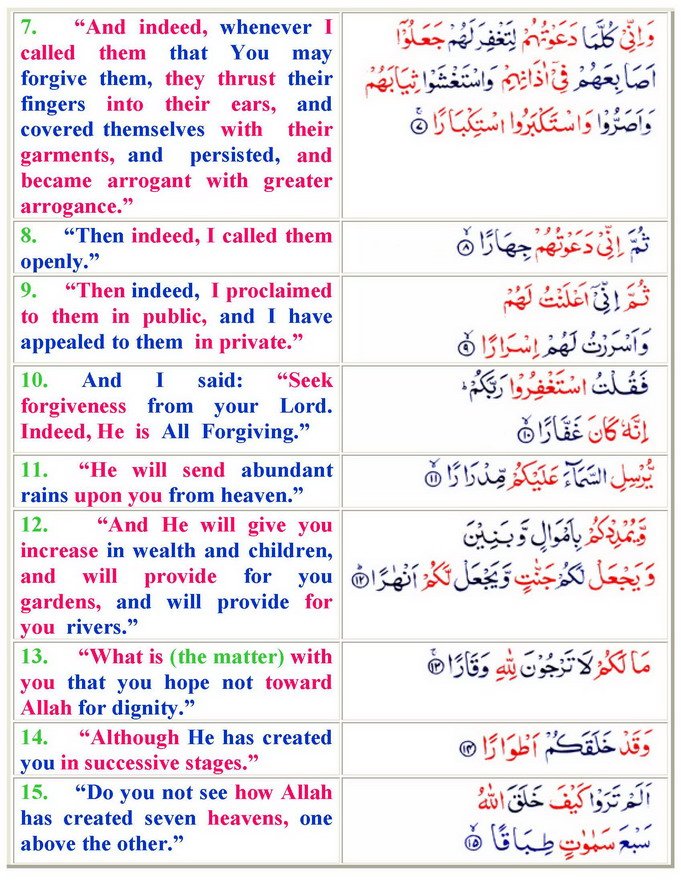 7. “And indeed, whenever I
called them that You may
forgive them, they thrust their
fingers into their ears, and
covered themselves with their
garments, and persisted, and
became arrogant with greater
arrogance.”
وَاِنِّیْ كُلَّمَا دَعَوْتُهُمْ لِتَغْفِرَ لَهُمْ جَعَلُوْۤا
اَصَابِعَهُمْ فِیْۤ اٰذَانِهِمْ وَاسْتَغْشَوْا ثِیَابَهُمْ
وَاَصَرُّوْا وَاسْتَكْبَرُوا اسْتِكْبَارًا ۚ ﴿۷﴾
8. “Then indeed, I called them
openly.”
ثُمَّ اِنِّیْ دَعَوْتُهُمْ جِهَارًا ۙ ﴿۸﴾
9. “Then indeed, I proclaimed
to them in public, and I have
appealed to them in private.”
ثُمَّ اِنِّیْۤ اَعْلَنْتُ لَهُمْ
وَاَسْرَرْتُ لَهُمْ اِسْرَارًا ۙ ﴿۹﴾
10. And I said: “Seek
forgiveness from your Lord.
Indeed, He is All Forgiving.”
فَقُلْتُ اسْتَغْفِرُوْا رَبَّكُمْ ؕ
اِنَّهٗ كَانَ غَفَّارًا ۙ ﴿۱۰﴾
11. “He will send abundant
rains upon you from heaven.”
یُّرْسِلِ السَّمَآءَ عَلَیْكُمْ مِّدْرَارًا ۙ ﴿۱۱﴾
12. “And He will give you
increase in wealth and children,
and will provide for you
gardens, and will provide for
you rivers.”
وَّیُمْدِدْكُمْ بِاَمْوَالٍ وَّبَنِیْنَ
وَیَجْعَلْ لَّكُمْ جَنّٰتٍ وَّیَجْعَلْ لَّكُمْ اَنْهٰرًا ؕ ﴿۱۲﴾
13. “What is (the matter) with
you that you hope not toward
Allah for dignity.”
مَا لَكُمْ لَا تَرْجُوْنَ لِلّٰهِ وَقَارًا ۚ ﴿۱۳﴾
14. “Although He has created
you in successive stages.”
وَقَدْ خَلَقَكُمْ اَطْوَارًا ﴿۱۴﴾
15. “Do you not see how Allah
has created seven heavens, one
above the other.”
اَلَمْ تَرَوْا كَیْفَ خَلَقَ اللّٰهُ
سَبْعَ سَمٰوٰتٍ طِبَاقًا ۙ ﴿۱۵﴾